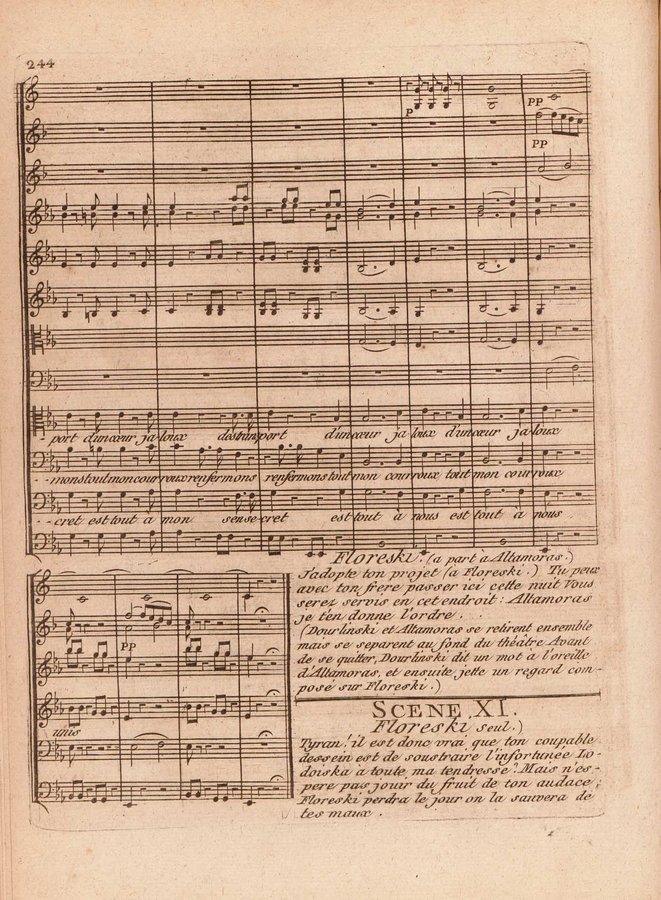 244
P
PP
PP
- port d'un cœur ja-loux des tran port d'un cœur ja loux d'un cœur ja loux
- mons tout mon courroux renfermons renfermons tout mon courroux tout mon courroux
- - cret est tout à mon sens e-cret est tout à nous est tout à nous
Floreski. (a part à Altamoras.)
J'adopte ton projet (a Floreski.) Tu peux
avec ton frere passer ici cette nuit Vous
serez servis en cet endroit: Altamoras
je t'en donne l'ordre.
(Dourlinski et Altamoras se retirent ensemble
mais se separent au fond du théâtre Avant
de se quitter, Dourlinski dit un mot à l'oreille
d'Altamoras, et ensuite jette un regard com-
posé sur Floreski.)
PP
unis
SCENE XI.
Floreski seul.)
Tyran! il est donc vrai que ton coupable
dessein est de soustraire l'infortunée Lo-
doiska à toute ma tendresse? Mais n'es-
pere pas jouir du fruit de ton audace;
Floreski perdra le jour ou la sauvera de
tes maux.